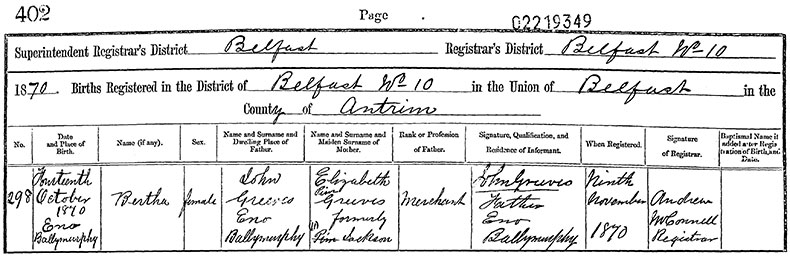 402 Page 02219349
Superintendent Registrar's District Belfast Registrar's District Belfast No 10
1870. Births Registered in the District of Belfast No 10 in the Union of Belfast in the
County of Antrim
No. Date and Place of Birth. Name (if any). Sex. Name and Surname and Dwelling Place of Father. Name and Surname and Maiden Surname of Mother. Rank or Profession of Father. Signature, Qualification, and Residence of Informant. When Registered. Signature of Registrar. Baptismal Name if added after Registration of Birth, and Date.
298
Fourteenth
October
1870
Eno
Ballymurphy
Bertha
female
John
Greeves
Eno
Ballymurphy
Elizabeth
Pim
Greeves
formerly
Pim Jackson
Merchant
John Greeves
Father
Eno
Ballymurphy
Ninth
November
1870
Andrew
McConnell
Registrar